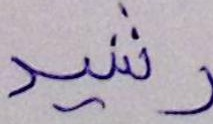 رشيد